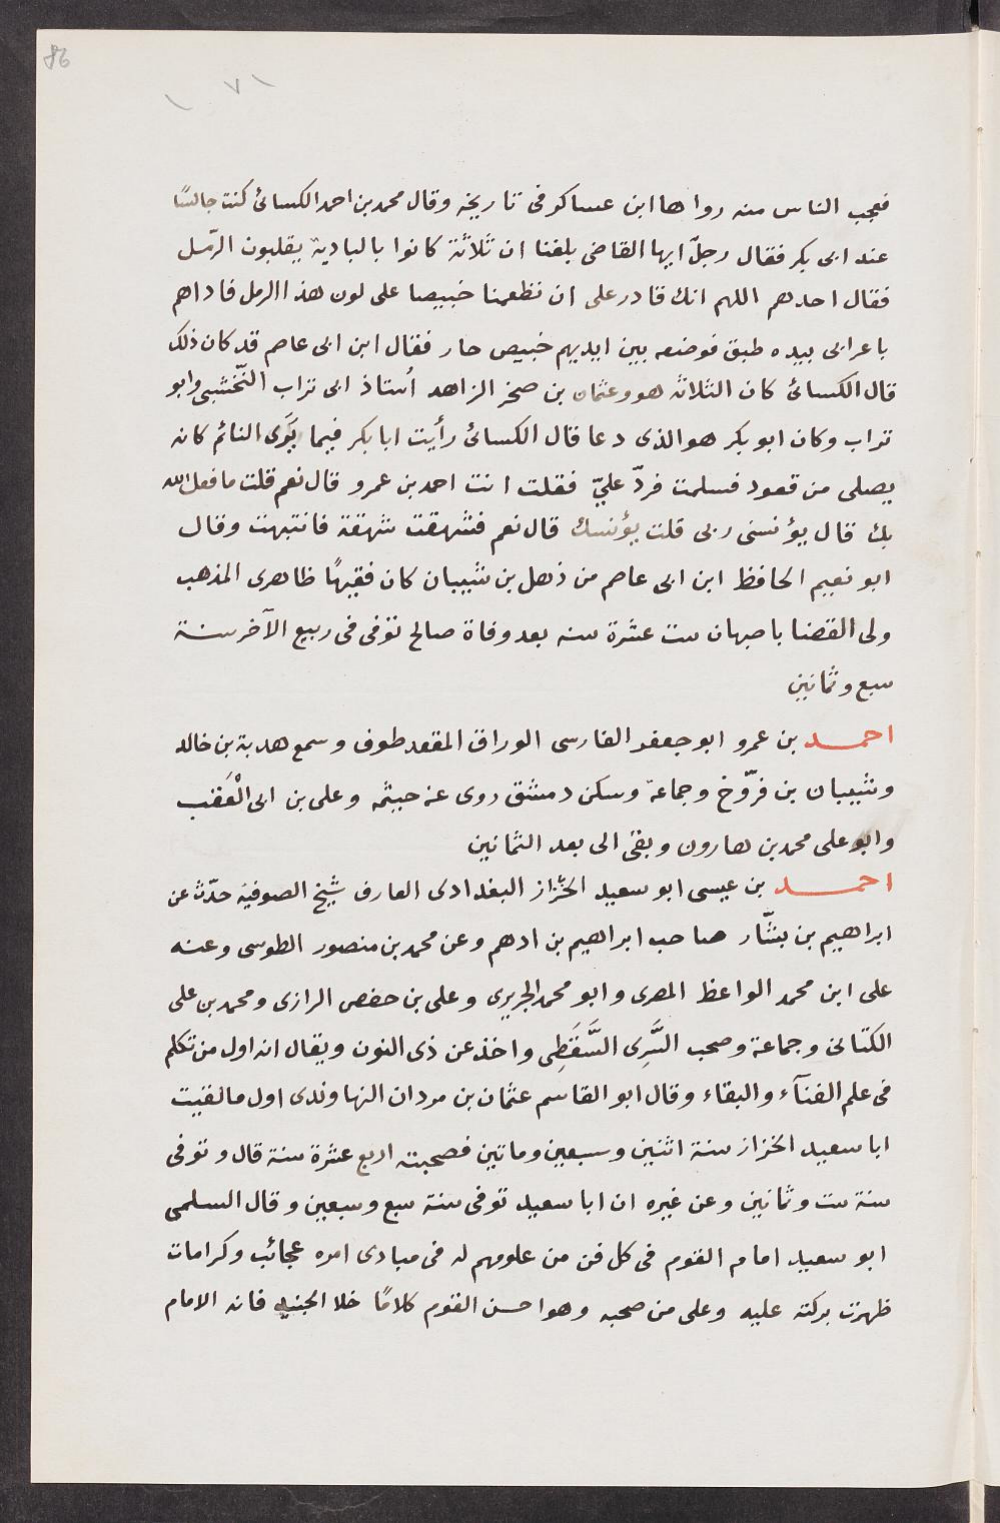 86
١٧١
فعجب الناس منه رواها ابن عساكر فى تاريخه وقال محمد بن احمد الكسائى كنت جالسًا
عند ابى بكر فقال رجلّ ايها القاضى بلغنا ان ثلاثة كانوا بالبادية يقلبون الرّمل
فقال احدهم اللهم انك قادر على ان تطعمنا خبيصا على لون هذا الرمل فاذاهم
باعرابى بيده طبق فوضعه بين ايديهم خبيص حار فقال ابن ابى عاصم قد كان ذلك
قال الكسائى كان الثلاثة هو وعثمان بن صخر الزاهد اُستاذ ابى تراب النّخشبى وابو
تراب وكان ابو بكر هو الذى دعا قال الكسائى رأيت ابا بكر فيما يَرَى النائم كانه
يصلى من قعود فسلمت فردّ علىّ فقلت انت احمد بن عمرو قال نعم قلت ما فعل الله
بك قال يؤنسنى ربى قلت يؤنسك قال نعم فشهقت شهقة فانتبهت وقال
ابو نعيم الحافظ ابن ابى عاصم من ذهل بن شيبان كان فقيهًا ظاهرى المذهب
ولى القضا باصبهان ست عشرة سنه بعد وفاة صالح توفى فى ربيع الآخر سنة
سبع وثمانين
احمد بن عمرو ابو جعفر الفارسى الوراق المقعد طوف وسمع هدبة بن خالد
وشيبان بن فرّوخ وجماعة وسكن دمشق روى عنه خيثمه وعلى بن ابى الْعَقَب
وابو على محمد بن هارون وبقى الى بعد الثمانين
احمد بن عيسى ابو سعيد الخرّاز البغدادى العارف شيخ الصوفية حدّث عن
ابراهيم بن بشّار صاحب ابراهيم بن ادهم وعن محمد بن منصور الطوسى وعنه
على ابن محمد الواعظ المصرى وابو محمد الجريرى وعلى بن حفص الرازى ومحمد بن على
الكتانى وجماعة وصحب السَّرِى السَّقَطِى واخذ عن ذى النون ويقال انه اول من تكلم
فى علم الفنآء والبقاء وقال ابو القاسم عثمان بن مردان النهاوندى اول ما لقيت
ابا سعيد الخزاز سنة اثنين وسبعين وماتين فصحبته اربع عشرة سنة قال وتوفى
سنة ست وثمانين وعن غيره ان ابا سعيد توفى سنة سبع وسبعين وقال السلمى
ابو سعيد امام القوم فى كل فن من علومهم له فى مبادى امره عجائب وكرامات
ظهرت بركته عليه وعلى من صحبه وهو احسن القوم كلامًا خلا الجنيد فانه الامام